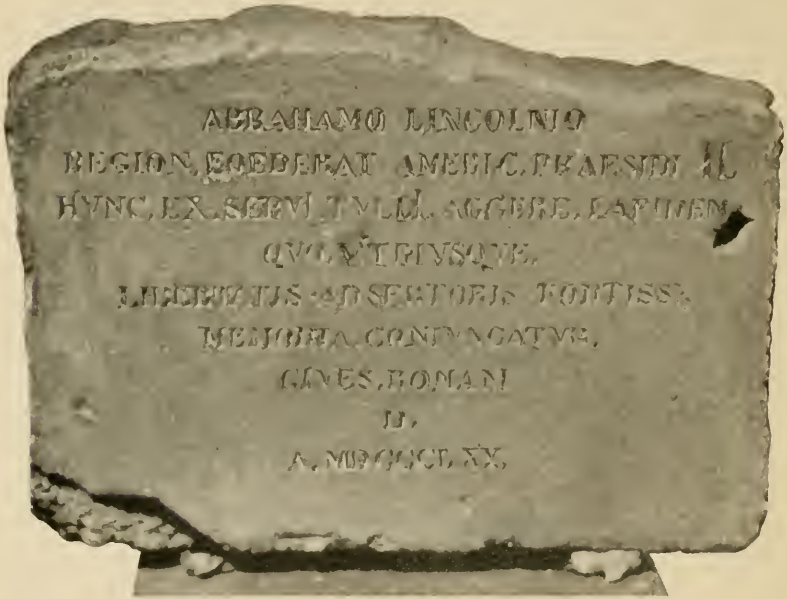 ABRAHAMO LINCOLNIO
REGION. FOEDERAT AMERIC. PRAESIDI II
HVNC. EX. SERVI. TVLLI. AGGERE. LAPIDEM.
QVO. VTRIVSQVE.
LIBERTATIS. ADSERTORIS FORTISS.
MEMORIA. CONIVNGATVR.
CIVES. ROMANI
D.
A. MDCCCLXX.